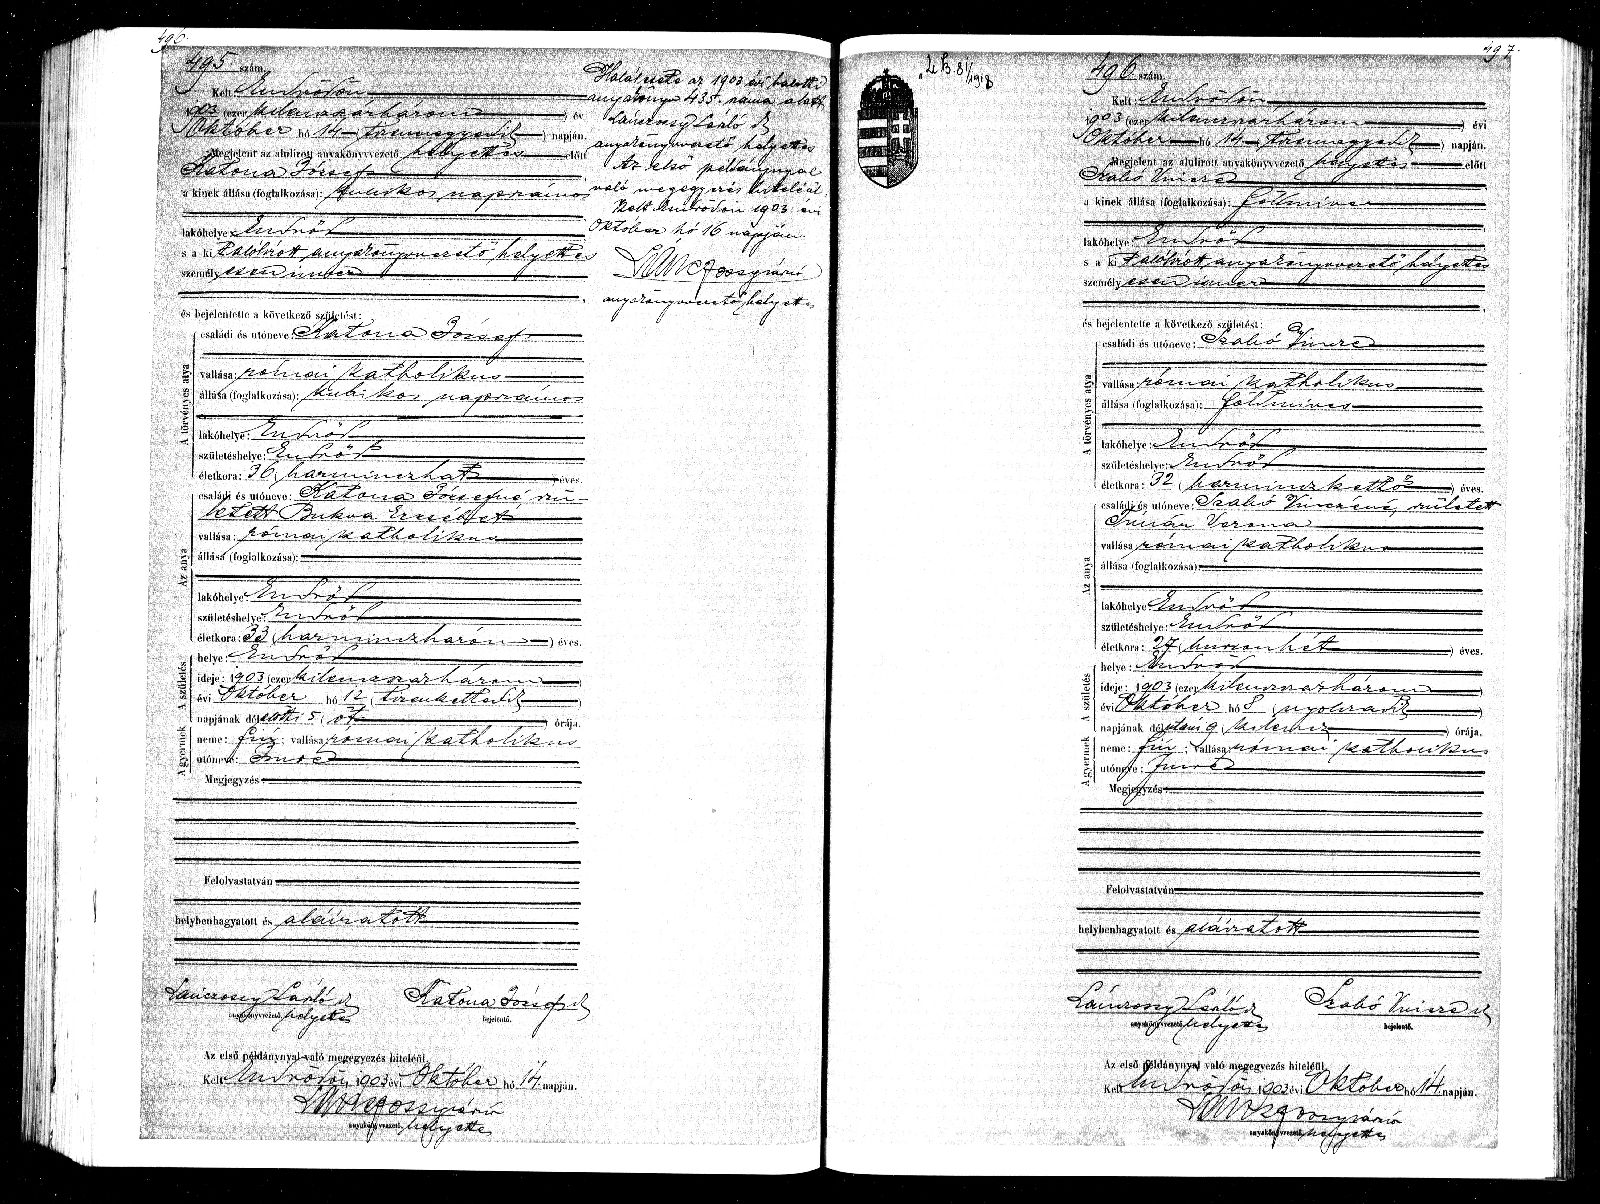 496.
495 szám.
Kelt: Endrődön
1903 (ezer kilenczszázhárom) évi
Október hó 14 (tizennegyedik) napján.
Megjelent az alulírott anyakönyvvezető helyettes előtt
Katona József
a kinek állása (foglalkozása): kubikos napszámos
lakóhelye: Endrőd
s a kit alólírott anyakönyvvezető helyettes
személyesen ismer
és bejelentette a következő születést:
A törvényes atya
családi és utóneve: Katona József
vallása: római katholikus
állása (foglalkozása): kubikos napszámos
lakóhelye: Endrőd
születéshelye: Endrőd
életkora: 36 (harminczhat) éves.
Az anya
családi és utóneve: Katona Józsefné, szü-
letett Bukva Erzsébet
vallása: római katholikus
állása (foglalkozása):
lakóhelye: Endrőd
születéshelye: Endrőd
életkora: 33 (harminczhárom) éves.
A születés
helye: Endrőd
ideje: 1903 (ezer kilenczszázhárom)
évi Október hó 12 (tizenkettedik)
napjának délelőtti 5 (öt) órája.
A gyermek
neme: fiú; vallása: római katholikus
utóneve: Imre
Megjegyzés:
Felolvastatván
helybenhagyatott és aláíratott
Lánczossy László sk
anyakönyvvezető helyettes
Katona József sk
bejelentő.
Az első példánynyal való megegyezés hiteléül.
Kelt Endrődön, 1903 évi Október hó 14 napján.
anyakönyvvezető helyettes
Halálesete az 1903 évi halotti
anyakönyv 435. száma alatt
Lánczossy László sk
anyakönyvvezető helyettes
Az első példánynyal
való megegyezés hiteléül
Kelt Endrődön 1903 évi
Október hó 16 napján
anyakönyvvezető helyettes
497.
496 szám.
Kelt: Endrődön
1903 (ezer kilenczszázhárom) évi
Október hó 14 (tizennegyedik) napján.
Megjelent az alulírott anyakönyvvezető helyettes előtt
Szabó Vincze
a kinek állása (foglalkozása): földmíves
lakóhelye: Endrőd
s a kit alólírott anyakönyvvezető helyettes
személyesen ismer
és bejelentette a következő születést:
A törvényes atya
családi és utóneve: Szabó Vincze
vallása: római katholikus
állása (foglalkozása): földmíves
lakóhelye: Endrőd
születéshelye: Endrőd
életkora: 32 (harminczkettő) éves.
Az anya
családi és utóneve: Szabó Vinczéné, született
Verona
vallása: római katholikus
állása (foglalkozása):
lakóhelye: Endrőd
születéshelye: Endrőd
életkora: 27 (huszonhét) éves.
A születés
helye: Endrőd
ideje: 1903 (ezer kilenczszázhárom)
évi Október hó 8 (nyolczadik)
napjának délutáni 9 (kilencz) órája.
A gyermek
neme: fiú; vallása: római katholikus
utóneve: Imre
Megjegyzés:
Felolvastatván
helybenhagyatott és aláíratott
Lánczossy László sk
anyakönyvvezető helyettes
Szabó Vincze sk
bejelentő.
Az első példánynyal való megegyezés hiteléül.
Kelt Endrődön, 1903 évi Október hó 14 napján.
anyakönyvvezető helyettes